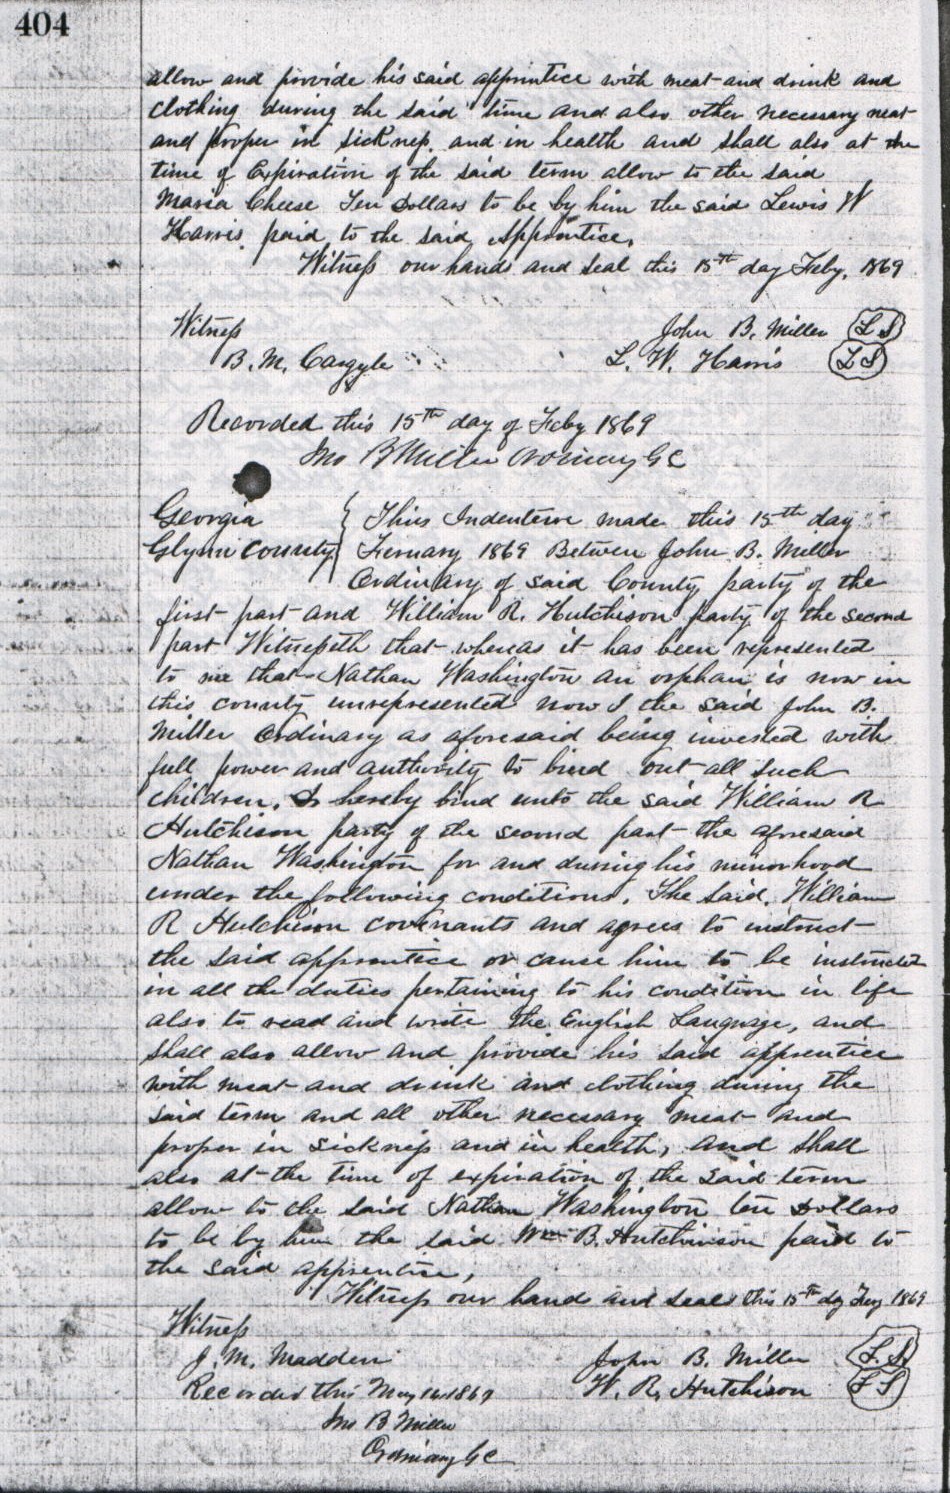 404
allow and provide his said apprentice with meat and drink and
clothing during the said time and also other necessary meat
and proper in sickness, and in health and shall also at the
time of Expiration of the said term allow to the said
Maria Cheese Ten Dollars to be by him the said Lewis W
Harris paid to the said Apprentice,
Witness our hands and seal this 15th day Feby, 1869
Witness John B. Miller (LS)
B. M. Cargyle L. W. Harris (LS)
Recorded this 15th day of Feby 1869
Jno B Miller Ordinary GC
Georgia } This Indenture made this 15th day
Glynn County } Feruary 1869 Betwen John B. Miller
Ordinary of said County party of the
first part and William R. Hutchison party of the second
part Witnesseth that whereas it has been represented
to me that Nathan Washington an orphan is now in
this county unrepresented now I the said John B.
Miller Ordinary as aforesaid being invested with
full power and authority to bind out all such
children, do hereby bind unto the said William R
Hutchison party of the second part the aforesaid
Nathan Washington for and during his minorhood
under the following conditions. The said, William
R Hutchison covenants and agrees to instruct
the said apprentice or cause him to be instructed
in all the duties pertaining to his condition in life
also to read and write the English Language, and
shall also allow and provide his said apprentice
with meat and drink and clothing during the
said term and all other necessary meat and
proper in sickness and in health, and shall
also at the time of expiration of the said term
allow to the said Nathan Washington ten Dollars
to be by him the said Wm B. Hutchinson paid to
the said apprentice,
Witness our hand and seal this 15th day Feby 1869
Witness
J. M. Madden John B. Miller (L.S.)
Recorded this May 1869 W. R. Hutchison (LS)
Jno B Miller
Ordinary GC